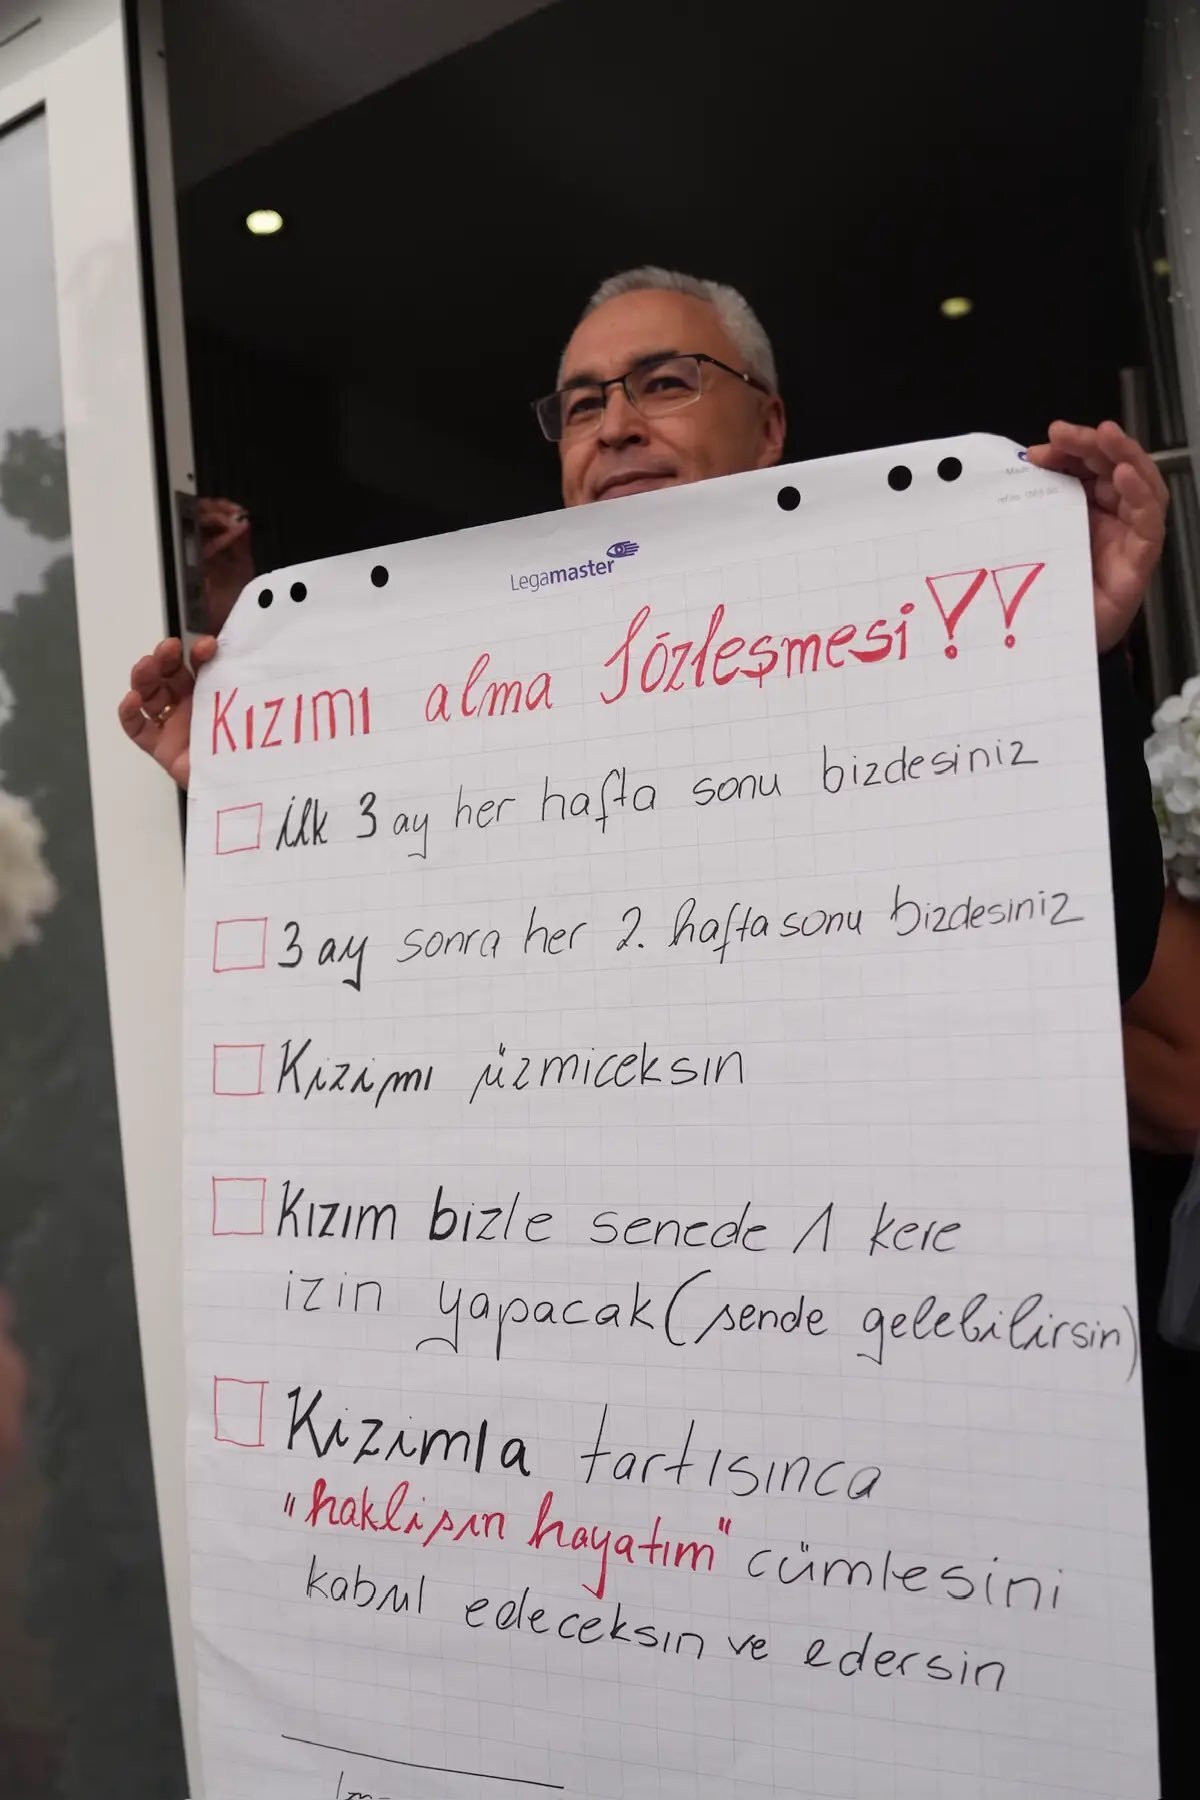 Legamaster
Kızımı alma Sözleşmesi!!
ilk 3 ay her hafta sonu bizdesiniz
3 ay sonra her 2. hafta sonu bizdesiniz
Kizimı üzmiceksın
Kızım bizle senede 1 kere
izin yapacak (sende gelebilirsin)
Kizimla tartısınca
"haklisın hayatım" cümlesini
kabul edeceksın ve edersin